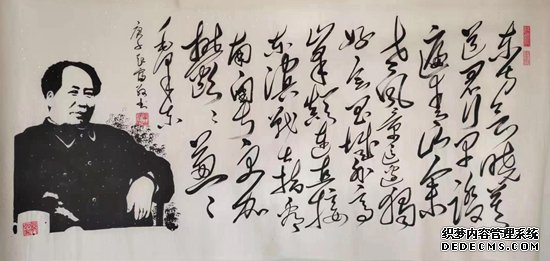 东方欲晓莫
道君行早踏
遍青山人未
老风景这边独
好会昌城外高
峰颠连直接
东溟战士指看
南粤更加
郁〻葱〻
毛泽东
庚子
书
织梦内容管理系统
DEDECMS.COM